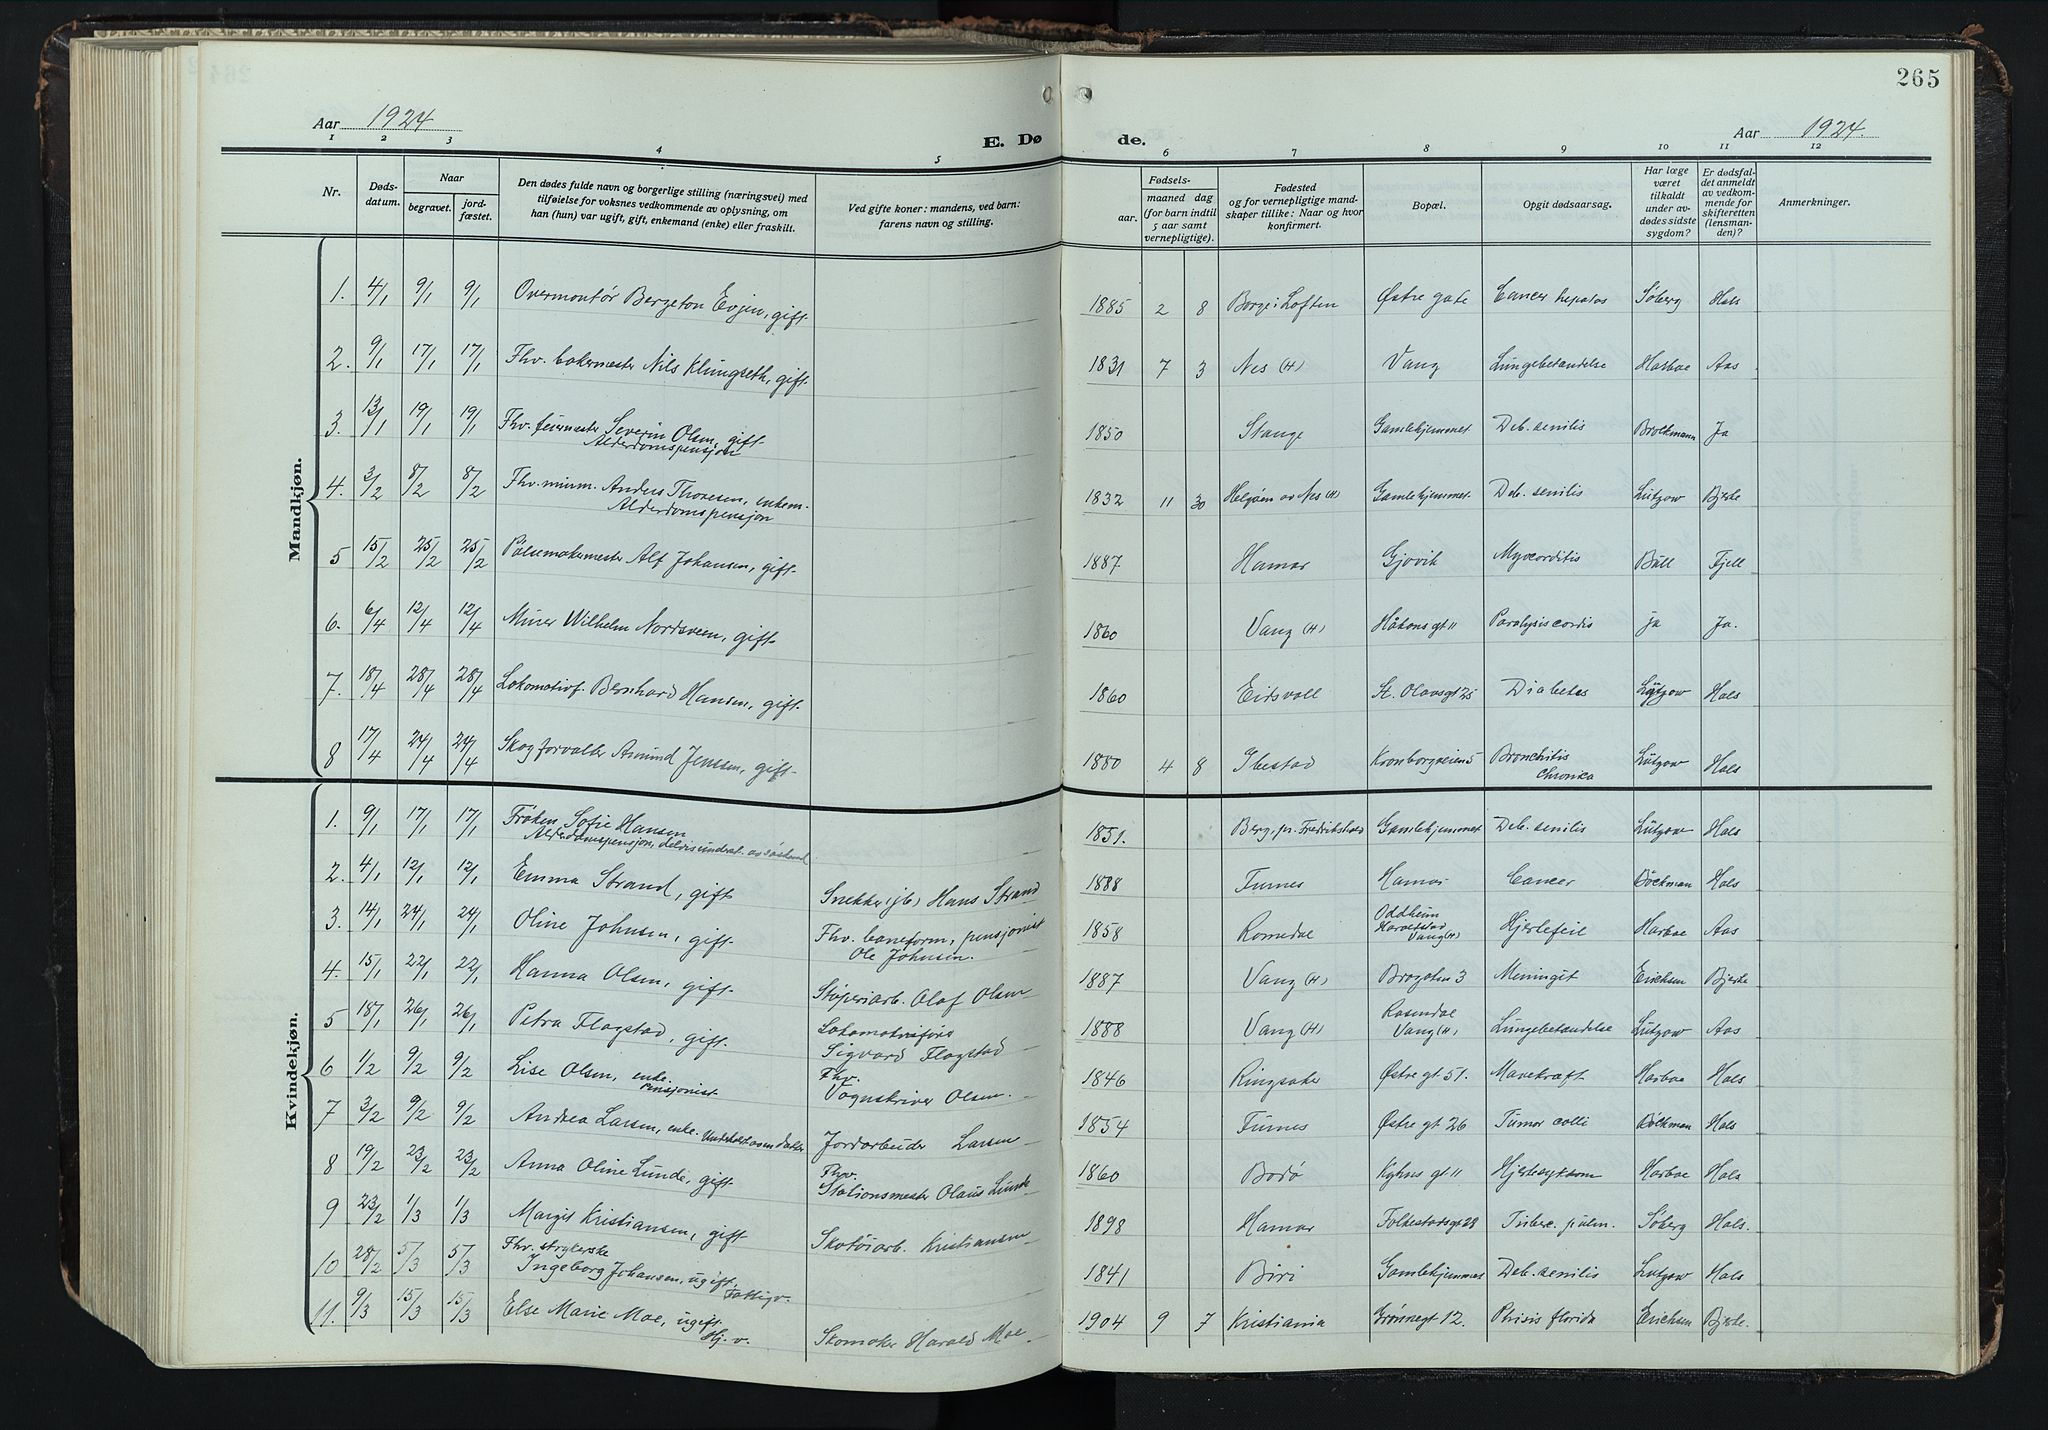 265
Aar 1924
E. Dø
de.
Aar 1924.
1 2 3 4 5 6 7 8 9 10 11 12
Nr.
Døds-
datum.
Naar
begravet.
jord-
fæstet.
Den dødes fulde navn og borgerlige stilling (næringsvei) med
tilføielse for voksnes vedkommende av oplysning, om
han (hun) var ugift, gift, enkemand (enke) eller fraskilt.
Ved gifte koner: mandens, ved barn:
farens navn og stilling.
Fødsels-
aar.
maaned dag
(for barn indtil
5 aar samt
vernepligtige).
Fødested
og for vernepligtige mand-
skaper tillike: Naar og hvor
konfirmert.
Bopæl.
Opgit dødsaarsag.
Har læge
været
tilkaldt
under av-
dødes sidste
sygdom?
Er dødsfal-
det anmeldt
av vedkom-
mende for
skifteretten
(lensman-
den)?
Anmerkninger.
Mandkjøn.
1. 4/1 9/1 9/1 Overmontør Bergeton Evjen, gift. 1885 2 8 Borge i Loften Østre gate Cancer hepatos Søberg Hals
2. 9/1 17/1 17/1 Fhv. bakermester Nils Klungseth, gift. 1831 7 3 Nes (H) Vang Lungebetændelse Harboe Aas
3. 13/1 19/1 19/1 Fhv. feiermester Severin Olsen, gift. 1850 Stange Gamlehjemmet Deb. senilis Ja
Alderdomspensjon
4. 3/2 8/2 8/2 Fhv. murm. Anders Thoresen, enkem. 1832 11 30 Helgøen av Nes (H) Gamlehjemmet Deb. senilis Lützow Bjerke
Alderdomspensjon
5 15/2 25/2 25/2 Pølsemakermester Alf Johansen, gift. 1887 Hamar Gjøvik Myocorditis Bull Fjell
6. 6/4 12/4 12/4 Murer Wilhelm Nordsveen, gift. 1860 Vang (H) Håkons gt 11 Paralysis cordis ja Ja.
7. 18/4 28/4 28/4 Lokomotivf. Bernhard Hansen, gift. 1860 Eidsvoll St. Olavsgt 25 Diabetes Lützow Hals
8 17/4 24/4 24/4 Skogforvalter Amund Jenssen, gift. 1880 4 8 Ibestad Kronborgveien 5 Bronchitis
chronica Lützow Hals
Kvindekjøn.
1. 9/1 17/1 17/1 Frøken Sofie Hansen 1851. Berg, pr. Fredrikshald Gamlehjemmet Deb. senilis Lützow Hals
Alderdomspensjon, delvis underst. av
2. 4/1 12/1 12/1 Emma Strand, gift Snekker (jb) Hans Strand 1888 Furnes Hamar Cancer Hals
3. 14/1 24/1 24/1 Oline Johnsen, gift. Fhv. baneform, pensjonist
Ole Johnsen. 1858 Romedal Oddheim
Vang (H) Hjertefeil Harboe Aas
4. 15/1 22/1 22/1 Hanna Olsen, gift. Støperiarb. Olaf Olsen 1887 Vang (H) Brogaten 3 Meningit Erichsen Bjerke
5 18/1 26/1 26/1 Petra Flagstad, gift. Lokomotivfører
Sigvard Flagstad 1888 Vang (H) Rosendal
Vang (H) Lungebetændelse Lützow Aas
6 1/2 9/2 9/2 Lise Olsen, enke.
Pensjonist. Fhv.
Vognskriver Olsen. 1846 Ringsaker Østre gt 51. Mavekræft Harboe Hals
7 3/2 9/2 9/2 Andrea Larsen, enke. Underholdt av en datter Jordarbeider Larsen 1854 Furnes Østre gt 26 Tumor colli Hals
8 19/2 23/2 23/2 Anna Oline Lunde, gift. Fhv.
Stationsmester Olaus Lunde 1860 Bodø gt 11 Hjertesykdom Harboe Hals
9 23/2 1/3 1/3 Margit Kristiansen, gift Skotøiarb. Kristiansen 1898 Hamar Folkestadsgt 28 Tuberc. pulm. Søberg Hals.
10 28/2 5/3 5/3 Fhv. strykerske
Ingeborg Johansen, ugift.
Fattigv. 1841 Biri Gamlehjemmet Deb. senilis Lützow Hals
11. 9/3 15/3 15/3 Else Marie Moe, ugift.
Hj. v. Skomaker Harald Moe 1904 9 7 Kristiania Grønnegt 12. Phisis florida Erichsen Bjerke.